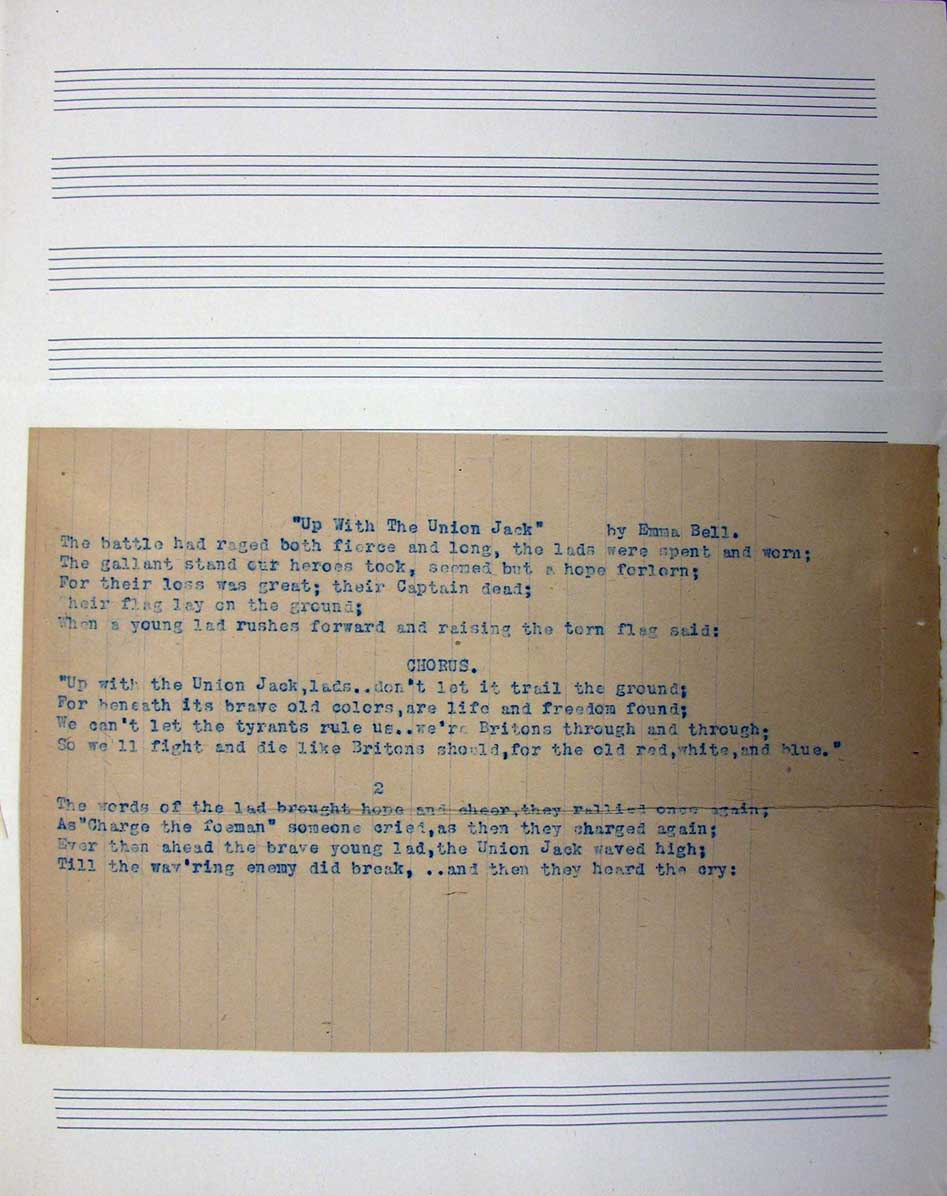 "Up With The Union Jack" by Emma Bell.
The battle had raged both fierce and long, the lads were spent and worn;
The gallant stand our heroes took, seemed but a hope forlorn;
For their loss was great; their Captain dead;
Their flag lay on the ground;
When a young lad rushes forward and raising the torn flag said:
CHORUS.
"Up with the Union Jack,lads..don't let it trail the ground;
For beneath its brave old colors,are life and freedom found;
We can't let the tyrants rule us..we're Britons through and through;
So we'll fight and die like Britons should,for the old red,white,and blue."
2
The words of the lad brought hope and cheer,they rallied once again;
As"Charge the foeman" someone cried,as then they charged again;
Ever then ahead the brave young lad,the Union Jack waved high;
Till the wav'ring enemy did break, ..and then they heard the cry: